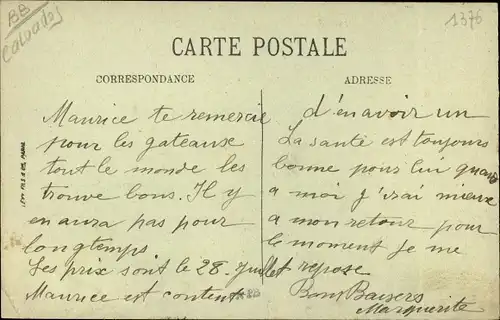 BB
Calvados
1376
CARTE POSTALE
CORRESPONDANCE
ADRESSE
Maurice te remercie
pour les gateause
tout le monde les
trouve bons. Il y
en aura pas pour
longtemps
Les prix sont le 28. Juillet
Maurice est content
d'en avoir un
La santé est toujours
bonne pour lui quand
a moi j'irai mieux
a mon retour pour
le moment je me
repose
Bons Baisers
Marguerite